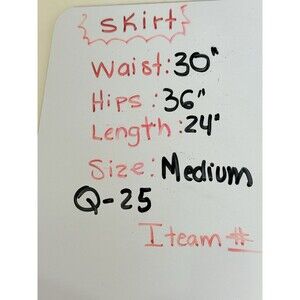 Skirt
Waist: 30"
Hips: 36"
Length: 24"
Size: Medium
Q-25
Iteam #